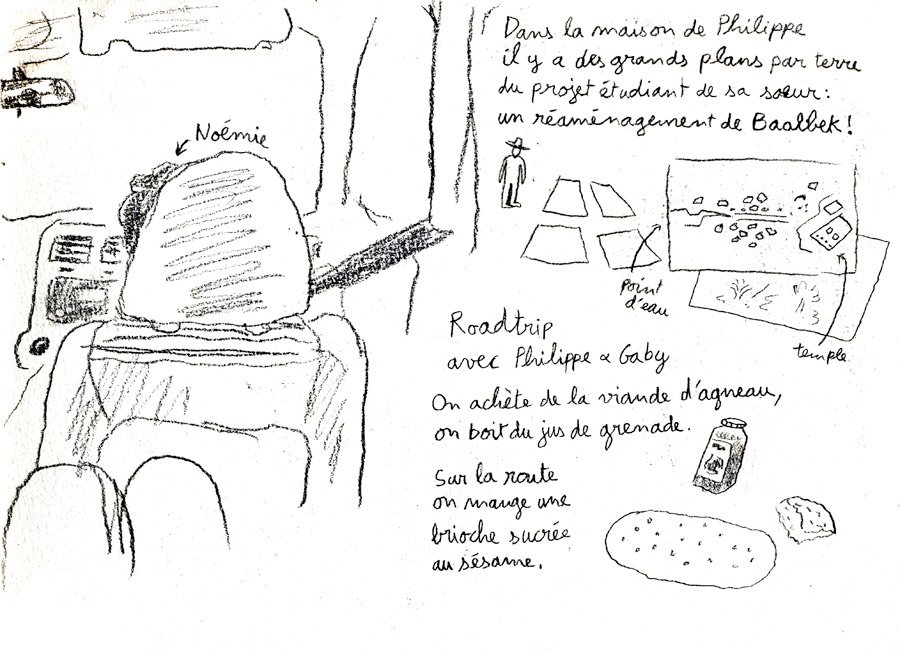 Noémie
Dans la maison de Philippe
il y a des grands plans par terre
du projet étudiant de sa sœur :
un réaménagement de Baalbek !
Point
d'eau
temple
Roadtrip
avec Philippe & Gaby
On achète de la viande d'agneau,
on boit du jus de grenade.
Sur la route
on mange une
brioche sucrée
au sésame.